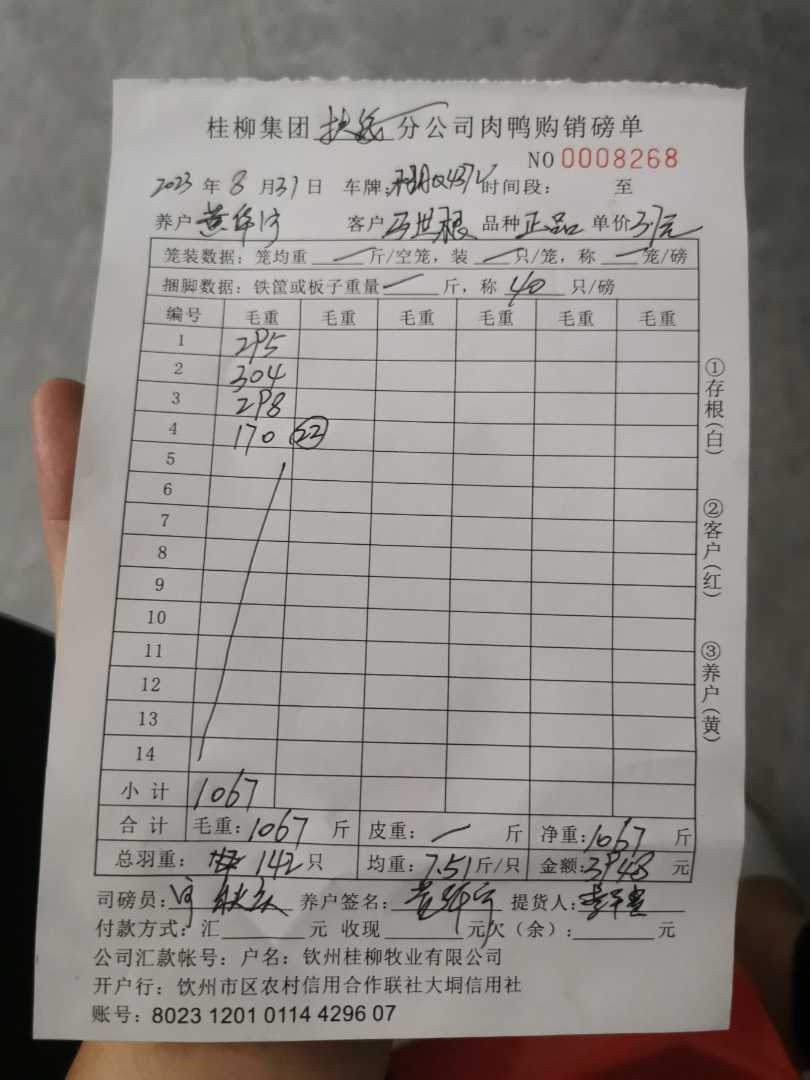 桂柳集团 分公司肉鸭购销磅单
NO 0008268
2023 年 8 月 31 日 车牌: 时间段: 至
养户 黄华 客户 世根 品种 正品 单价 3.7元
笼装数据: 笼均重 — 斤/空笼, 装 — 只/笼, 称 — 笼/磅
捆脚数据: 铁筐或板子重量 — 斤, 称 40 只/磅
编号 毛重 毛重 毛重 毛重 毛重 毛重
1 295
2 304
3 298
4 170 22
5
6
7
8
9
10
11
12
13
14
小计 1067
合计 毛重: 1067 斤 皮重: — 斤 净重: 1067 斤
总羽重: 142 只 均重: 7.51 斤/只 金额: 3948 元
司磅员: 养户签名: 提货人:
付款方式: 汇 元 收现 元欠(余): 元
公司汇款帐号: 户名: 钦州桂柳牧业有限公司
开户行: 钦州市区农村信用合作联社大垌信用社
账号: 8023 1201 0114 4296 07
①存根(白)
②客户(红)
③养户(黄)